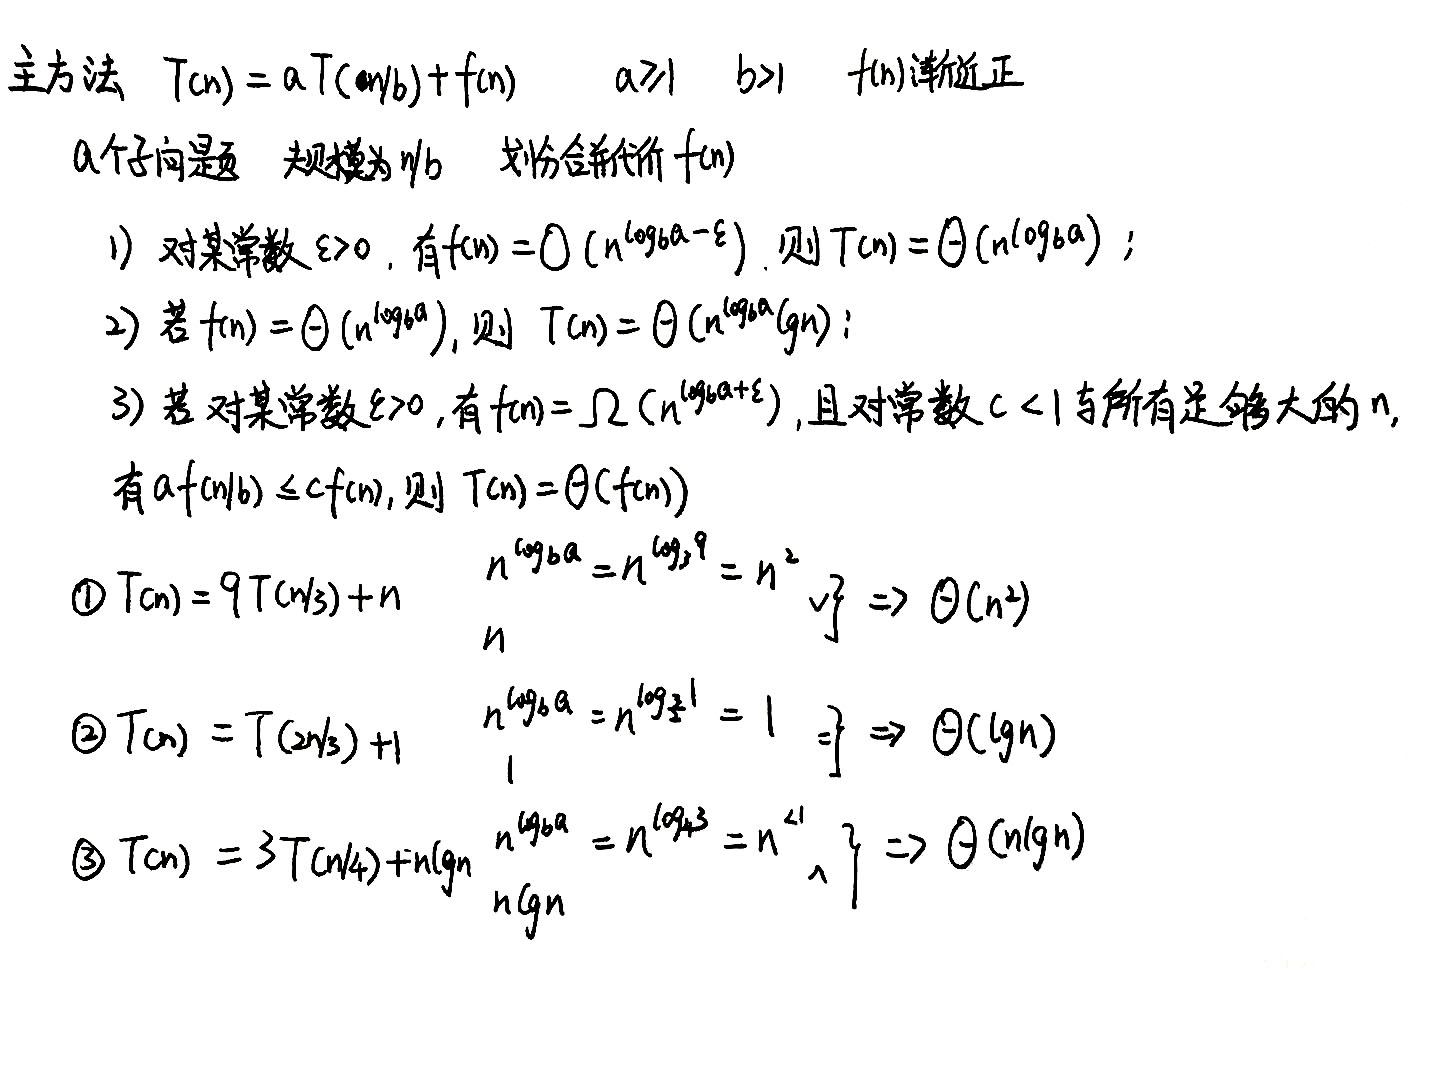 主方法 T(n) = aT(n/b) + f(n) a≥1 b>1 f(n)渐近正
a个子问题 规模为n/b 划分合并代价 f(n)
1) 对某常数 ε>0, 有f(n) = O(n^{log_b a - ε}), 则 T(n) = Θ(n^{log_b a});
2) 若 f(n) = Θ(n^{log_b a}), 则 T(n) = Θ(n^{log_b a} lgn);
3) 若对某常数 ε>0, 有 f(n) = Ω(n^{log_b a+ε}), 且对常数 c < 1 与所有足够大的 n,
有 a f(n/b) ≤ c f(n), 则 T(n) = Θ(f(n))
① T(n) = 9T(n/3) + n n^{log_b a} = n^{log_3 9} = n^2 ∨} => Θ(n^2)
n
② T(n) = T(2n/3) + 1 n^{log_b a} = n^{log_{3/2} 1} = 1 =} => Θ(lgn)
1
③ T(n) = 3T(n/4) + nlgn n^{log_b a} = n^{log_4 3} = n^{<1} ∧} => Θ(nlgn)
nlgn